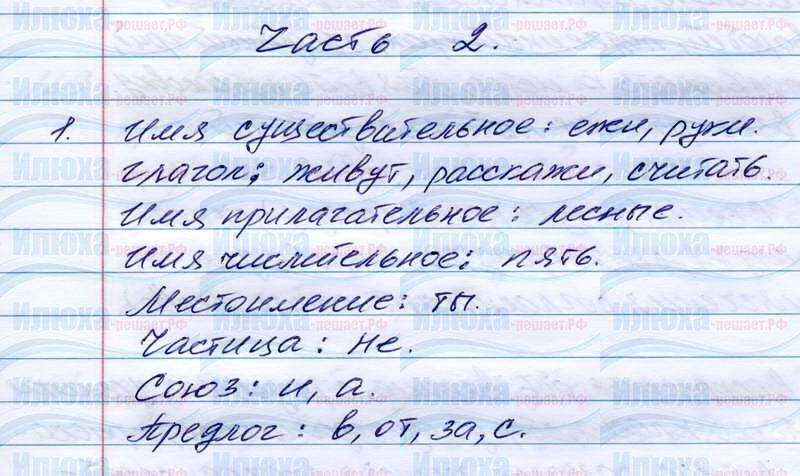 Часть 2.
1. Имя существительное: ежи, руки.
Глагол: живут, расскажи, считать.
Имя прилагательное: лесные.
Имя числительное: пять.
Местоимение: ты.
Частица: не.
Союз: и, а.
Предлог: в, от, за, с.